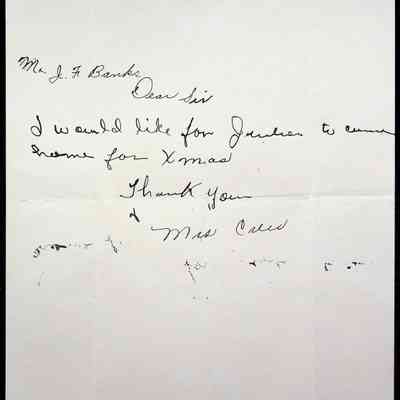 Mr J. F Banks
Dear Sir
I would like for Junior to come
home for Xmas
Thank you
Mrs